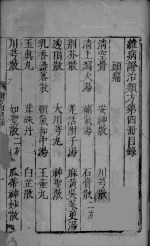 雜病證治類方第四冊目錄
頭痛
清空膏 安神散 川芎散
清上瀉火湯 補氣湯 石膏散二方
荊芥散 羌活附子湯 麻黃吳茱萸湯
透頂散 大川芎丸 神聖散
乳香盞落散 順氣和中湯
玉真丸 茸珠丹 白芷散
川芎散 如聖散二方 瓜蒂神妙散